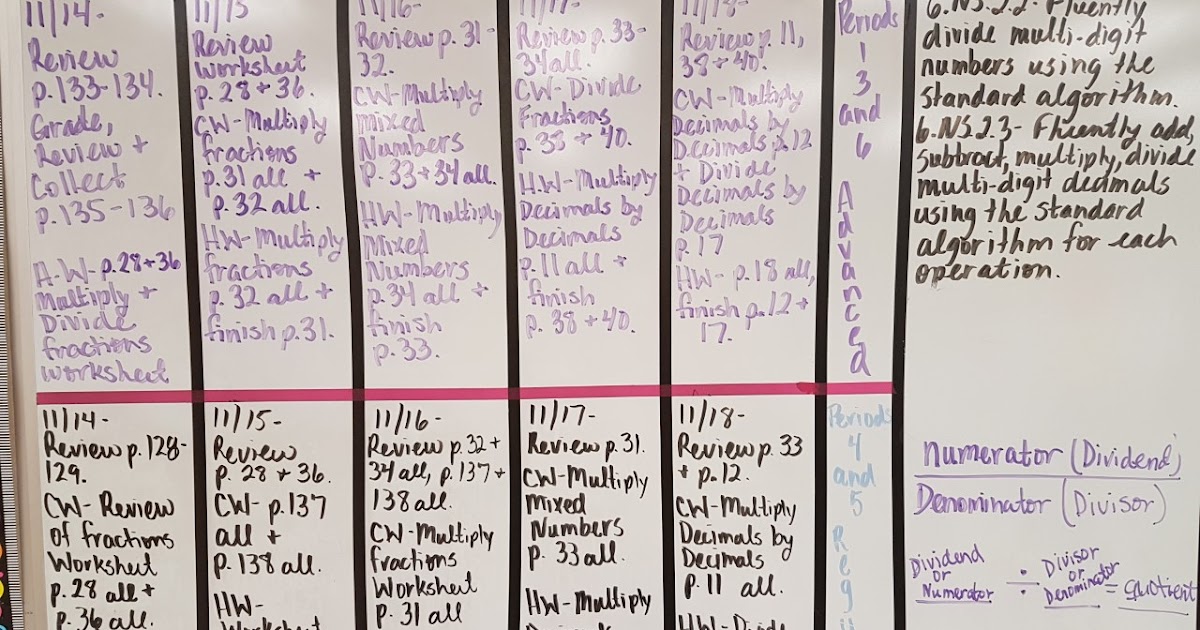 11/14-
Review
p.133-134.
Grade,
Review +
Collect
p.135-136
A.W-p.28+36
Multiply +
Divide
fractions
Worksheet
11/15
Review
Worksheet
p.28+36.
CW-Multiply
fractions
p.31 all +
p.32 all.
HW-Multiply
fractions
p.32 all +
finish p.31.
11/16-
Review p.31-
32.
CW-Multiply
Mixed
Numbers
p.33+34 all.
HW-Multiply
Mixed
Numbers
p.34 all +
finish
p.33.
11/17-
Review p.33-
34 all.
CW-Divide
Fractions
p.38 + 40.
H.W-Multiply
Decimals by
Decimals
p.11 all +
finish
p.38 + 40.
11/18-
Review p.11,
38 + 40.
CW-Multiply
Decimals by
Decimals p.12
+ Divide
Decimals by
Decimals
p.17
HW-p.18 all,
finish p.12 +
17.
Periods
1
3
and
6
A
d
v
a
n
c
e
d
6.NS.2.2- Fluently
divide multi-digit
numbers using the
standard algorithm.
6.NS.2.3- Fluently add,
subtract, multiply, divide
multi-digit decimals
using the standard
algorithm for each
operation.
11/14-
Review p.128-
129.
CW-Review
of fractions
Worksheet
p.28 all +
p.36 all.
11/15-
Review
p.28 + 36.
CW-p.137
all +
p.138 all.
HW-
11/16-
Review p.32 +
34 all, p.137 +
138 all.
CW-Multiply
fractions
Worksheet
p.31 all
11/17-
Review p.31.
CW-Multiply
Mixed
Numbers
p.33 all.
HW-Multiply
11/18-
Review p.33
+ p.12.
CW-Multiply
Decimals by
Decimals
p.11 all.
HW-Divide
Periods
4
and
5
R
e
g
Numerator (Dividend)
Denominator (Divisor)
Dividend or Numerator ÷ Divisor or Denominator = quotient